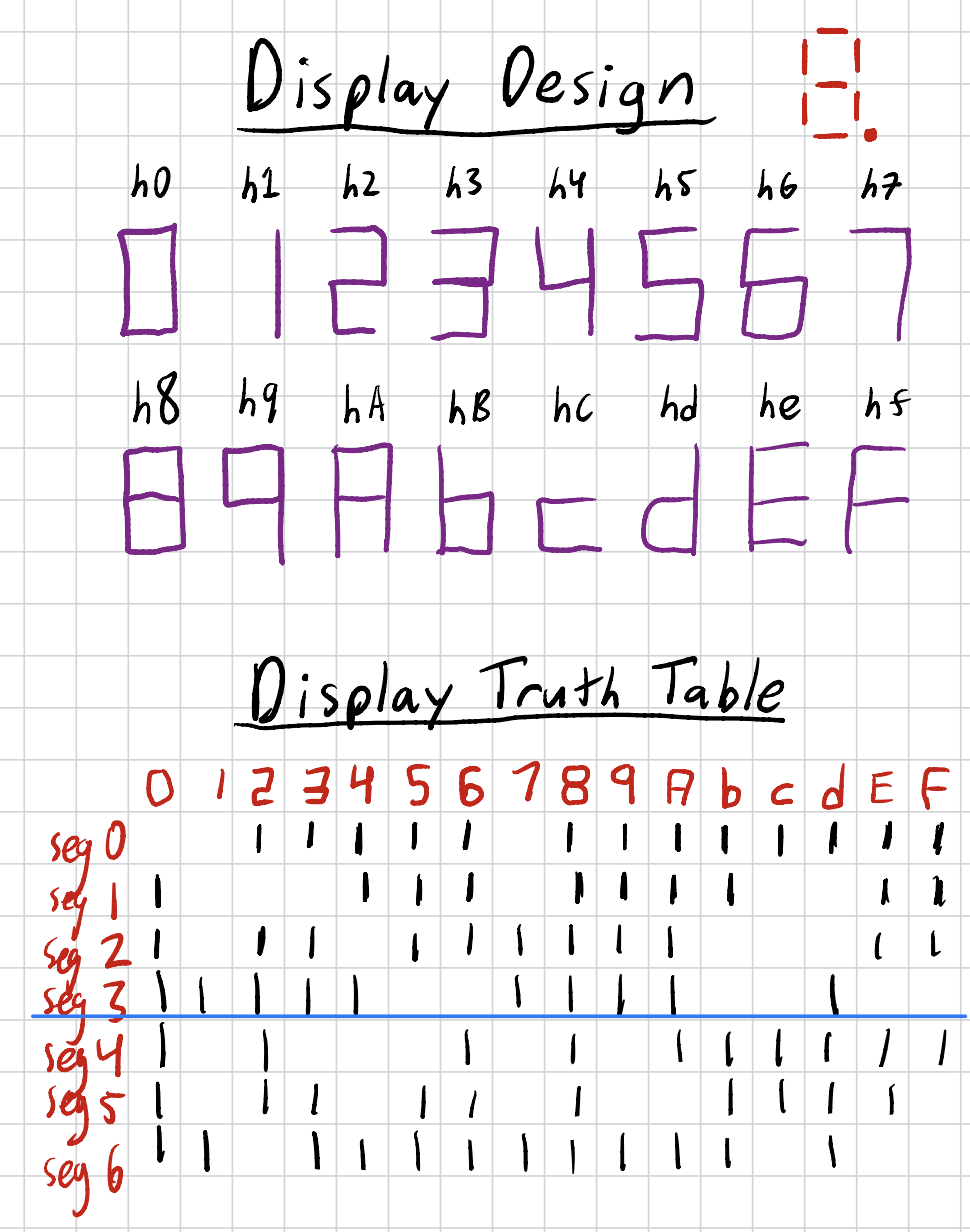 Display Design 8.
h0 h1 h2 h3 h4 h5 h6 h7
0 1 2 3 4 5 6 7
h8 h9 hA hB hC hd he hf
8 9 A b c d E F
Display Truth Table
0 1 2 3 4 5 6 7 8 9 A b c d E F
seg 0 1 1 1 1 1 1 1 1 1 1 1 1 1
seg 1 1 1 1 1 1 1 1 1 1 1
seg 2 1 1 1 1 1 1 1 1 1 1 1
seg 3 1 1 1 1 1 1 1 1 1 1
seg 4 1 1 1 1 1 1 1 1 1 1
seg 5 1 1 1 1 1 1 1 1 1 1
seg 6 1 1 1 1 1 1 1 1 1 1 1 1